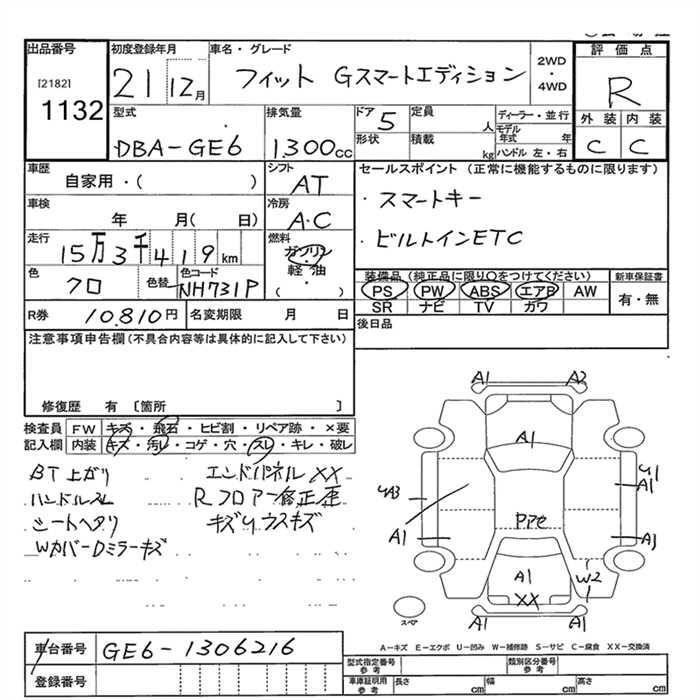 出品番号
[2182]
1132
初度登録年月
21 12月
車名・グレード
フィット Gスマートエディション
2WD
・
4WD
評価点
R
外装 内装
C C
型式
DBA-GE6
排気量
1300cc
ドア 5
形状
定員 人
積載 kg
ディーラー・並行
モデル年式 年
ハンドル 左・右
車歴
自家用・( )
シフト
AT
セールスポイント (正常に機能するものに限ります)
・スマートキー
・ビルトインETC
車検
年 月( 日)
冷房
A・C
走行
15万3千419km
燃料
ガソリン
軽油
・
( )
色
クロ
色替
色コード
NH731P
装備品 (純正品に限り○をつけてください)
PS PW ABS エアB AW
SR ナビ TV カワ
新車保証書
有・無
R券 10,810円
名変期限 月 日
後日品
注意事項申告欄(不具合内容等は具体的に記入して下さい)
修復歴 有 〔箇所 〕
検査員
記入欄
FW キズ・飛石・ヒビ割・リペア跡・×要
内装 キズ・汚レ・コゲ・穴・スレ・キレ・破レ
BT上がり
ハンドルスレ
シートヘタリ
WカバーDミラーキズ
エンドパネルXX
Rフロアー修正歴
キズUウスキズ
A1 A2
A1
UA3
A1
U1
A1
A1
P7e
A1
XX
W2
A1 A1
スペア
A-キズ E-エクボ U-凹み W-補修跡 S-サビ C-腐食 XX-交換済
車台番号
GE6-1306216
登録番号
型式指定番号
参考
類別区分番号
参考
車庫証明用
参考
長さ cm
幅 cm
高さ cm